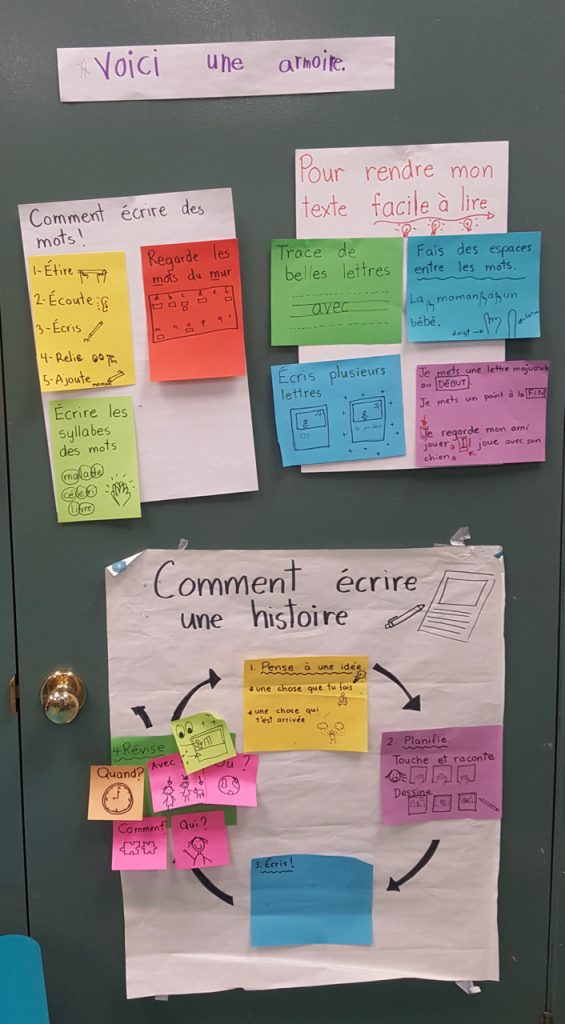 Voici une armoire.
Comment écrire des
mots!
1-Étire
2-Écoute
3-Écris
4-Relie
5-Ajoute
Regarde les
mots du mur
d b c d e f
m n o p q r
Écrire les
syllabes
des mots
malade
céleri
livre
Pour rendre mon
texte facile à lire
Trace de
belles lettres
avec
Fais des espaces
entre les mots.
La maman a un
bébé.
doigt
Écris plusieurs
lettres.
Je mets une lettre majuscule
au DÉBUT.
Je mets un point à la FIN
Je regarde mon ami
jouer. Il joue avec son
chien.
Comment écrire
une histoire
1. Pense à une idée
une chose que tu fais
une chose qui
t'est arrivée
2. Planifie
Touche et raconte
Dessine
3. Écris!
4. Révise
Avec
Où?
Quand?
Comment?
Qui?